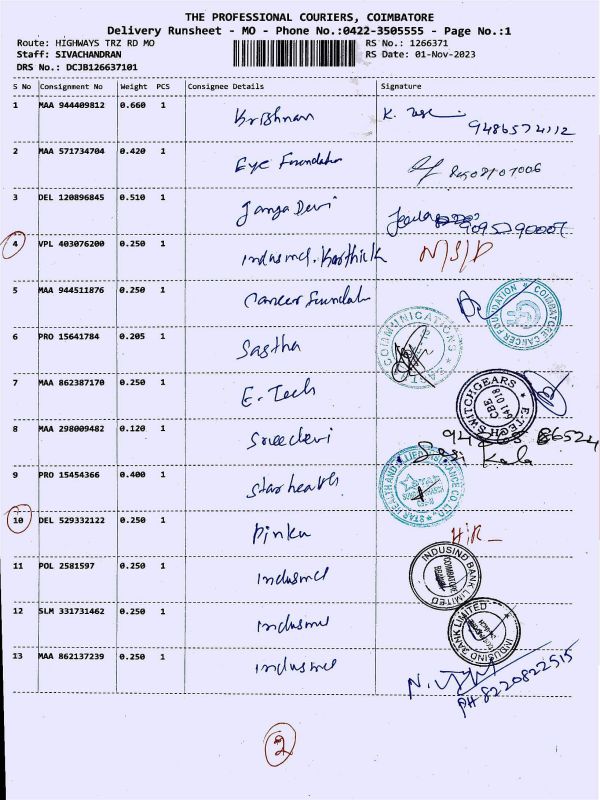 THE PROFESSIONAL COURIERS, COIMBATORE
Delivery Runsheet - MO - Phone No.:0422-3505555 - Page No.:1
Route: HIGHWAYS TRZ RD MO RS No.: 1266371
Staff: SIVACHANDRAN RS Date: 01-Nov-2023
DRS No.: DCJB126637101
S No Consignment No Weight PCS Consignee Details Signature
1 MAA 944409812 0.660 1 Krishnan K.
9486574112
2 MAA 571734704 0.420 1 Eye Foundation
3 DEL 120896845 0.510 1 Janga Devi
4 VPL 403076200 0.250 1 Indusind. Karthick N/S/P
5 MAA 944511876 0.250 1 Cancer Foundation COIMBATORE CANCER FOUNDATION
6 PRO 15641784 0.205 1 Sastha COMMUNICATIONS
7 MAA 862387170 0.250 1 E. Tech E-TECH SWITCHGEARS CBE 641 018
8 MAA 298009482 0.120 1 Sreedevi
Sasi Kala
9 PRO 15454366 0.400 1 Star health STAR HEALTH AND ALLIED INSURANCE CO. LTD.
10 DEL 529332122 0.250 1 Pinku
11 POL 2581597 0.250 1 Indusind INDUSIND BANK LIMITED COIMBATORE BRANCH
12 SLM 331731462 0.250 1 Indusind INDUSIND BANK LIMITED
13 MAA 862137239 0.250 1 Indusind
PH 8220822515
2